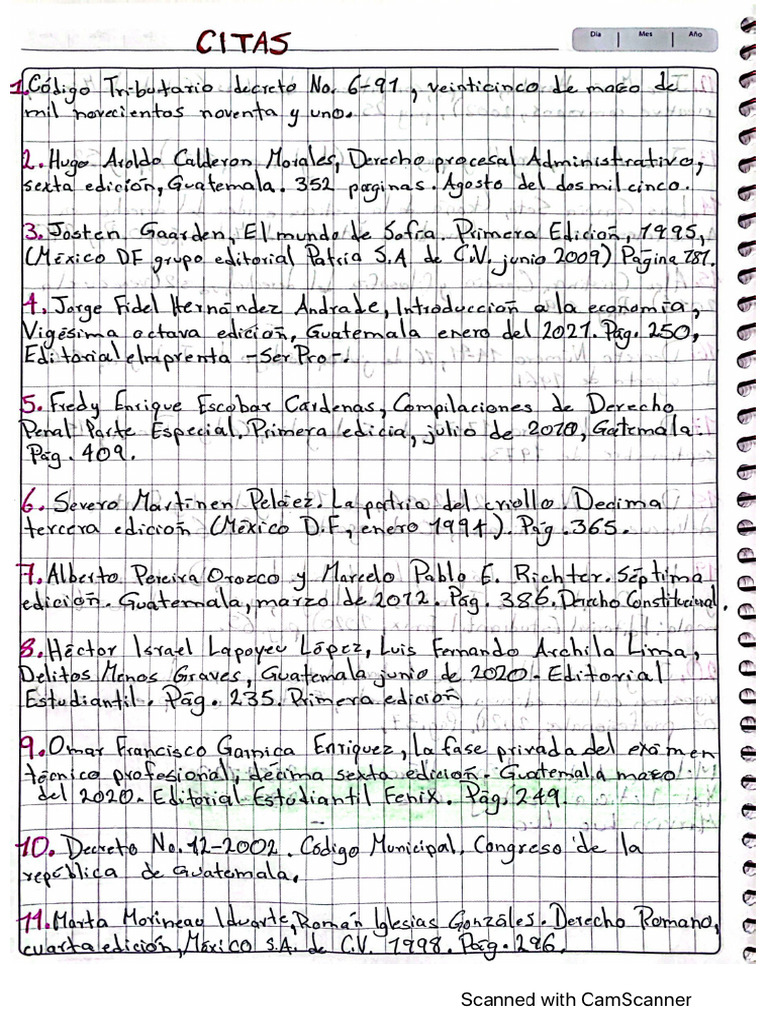 CITAS
Dia Mes Año
1. Código Tributario decreto No. 6-91, veinticinco de mazo de
mil novecientos noventa y uno.
2. Hugo Aroldo Calderon Morales, Derecho procesal Administrativo,
sexta edición, Guatemala. 352 paginas. Agosto del dos mil cinco.
3. Josten Gaarden, El mundo de Sofia. Primera Edicioñ, 1995,
(México DF grupo editorial Patria S.A de C.V. junio 2009) Página 781.
4. Jorge Fidel Hernández Andrade, Introduccioñ a la economia,
Vigesima octava edicioñ, Guatemala enero del 2021. Pág. 250,
Editorial e Imprenta -Ser Pro-.
5. Fredy Enrique Escobar Cardenas, Compilaciones de Derecho
Penal Parte Especial. Primera edicia, julio de 2010, Gatemala.
Pág. 409.
6. Severo Martinen Peláez. La patria del criollo. Decima
tercera edicioñ (México D.F, enero 1994). Pág. 365.
7. Alberto Pereira Orozco y Marcelo Pablo E. Richter. Séptima
edicioñ. Guatemala, marzo de 2012. Pág. 386. Derecho Constitucional.
8. Héctor Israel Lapoyeu López, Luis Fernando Archila Lima,
Delitos Menos Graves, Guatemala junio de 2020- Editorial
Estudiantil. Pág. 235. Primera edicioñ
9. Omar Francisco Garnica Enriquez, la fase privada del exámen
técnico profesional, décima sexta edicioñ. Guatemala mazo
del 2020. Editorial Estudiantil Fenix. Pág. 249.
10. Decreto No. 12-2002. Código Municipal, Congreso de la
república de Guatemala.
11. Marta Morineau Iduarte, Román Iglesias Gonzáles. Derecho Romano,
cuarta edición, México S.A. de C.V. 1998. Pág. 296.
Scanned with CamScanner